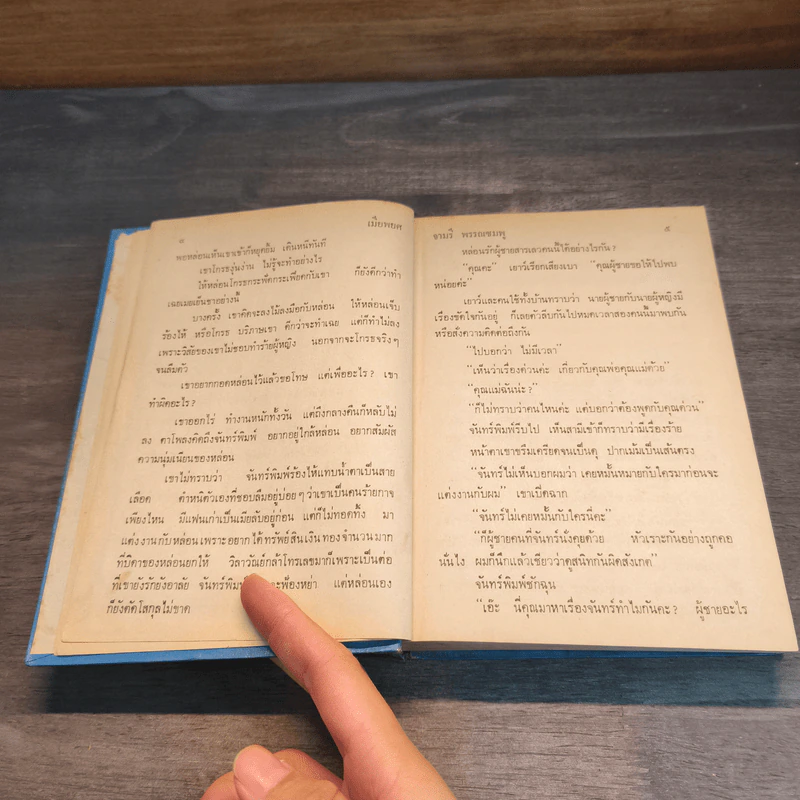 ๘ เมียพยศ
พอหล่อนเห็นเขาเข้าก็หยุดยิ้ม เดินหนีทันที
เขาโกรธงุ่นง่าน ไม่รู้จะทำอย่างไร
ให้หล่อนโกรธกระฟัดกระเฟียดกับเขา ก็ยังดีกว่าทำ
เฉยเมยเย็นชาอย่างนี้
บางครั้ง เขาคิดจะลงไม้ลงมือกับหล่อน ให้หล่อนเจ็บ
ร้องไห้ หรือโกรธ บริภาษเขา ดีกว่าจะทำเฉย แต่ก็ทำไม่ลง
เพราะวิสัยของเขาไม่ชอบทำร้ายผู้หญิง นอกจากจะโกรธจริงๆ
จนลืมตัว
เขาอยากกอดหล่อนไว้แล้วขอโทษ แต่เพื่ออะไร? เขา
ทำผิดอะไร?
เขาอกไร่ ทำงานหนักทั้งวัน แต่ถึงกลางคืนก็หลับไม่
ลง ตาโพลงคิดถึงจันทร์พิมพ์ อยากอยู่ใกล้หล่อน อยากสัมผัส
ความนุ่มเนียนของหล่อน
เขาไม่ทราบว่า จันทร์พิมพ์ร้องไห้แทบน้ำตาเป็นสาย
เลือด ตำหนิตัวเองที่ชอบลืมอยู่บ่อยๆ ว่าเขาเป็นคนร้ายกาจ
เพียงไหน มีแฟนเก่าเป็นเมียลับอยู่ก่อน แต่ก็ไม่ทอดทิ้ง มา
แต่งงานกับหล่อนเพราะอยากได้ทรัพย์สินเงินทองจำนวนมาก
ที่บิดาของหล่อนยกให้ วิลาวัณย์กล้าโทรเลขมาก็เพราะเป็นต่อ
ที่เขายังรักยังอาลัย จันทร์พิมพ์ จะฟ้องหย่า แต่หล่อนเอง
ก็ยังตัดโสกุลไม่ขาด
จามรี พรรณชมพู ๙
หล่อนรักผู้ชายสารเลวคนนี้ได้อย่างไรกัน?
"คุณคะ" เยาว์เรียกเสียงเบา "คุณผู้ชายขอให้ไปพบ
หน่อยค่ะ"
เยาว์และคนใช้ทั้งบ้านทราบว่า นายผู้ชายกับนายผู้หญิงมี
เรื่องขัดใจกันอยู่ ก็เลยตัวลีบกันไปหมดเวลาสองคนนั้นมาพบกัน
หรือสั่งความติดต่อถึงกัน
"ไปบอกว่า ไม่มีเวลา"
"เห็นว่าเรื่องด่วนค่ะ เกี่ยวกับคุณพ่อคุณแม่ด้วย"
"คุณแม่ฉันน่ะ?"
"ก็ไม่ทราบว่าคนไหนค่ะ แต่บอกว่าต้องพูดกับคุณด่วน"
จันทร์พิมพ์รีบไป เห็นสามีเข้าก็ทราบว่ามีเรื่องร้าย
หน้าตาเขาขรึมเครียดจนเป็นดุ ปากเม้มเป็นเส้นตรง
"จันทร์ไม่เห็นบอกผมว่า เคยหมั้นหมายกับใครมาก่อนจะ
แต่งงานกับผม" เขาเปิดฉาก
"จันทร์ไม่เคยหมั้นกับใครนี่คะ"
"ก็ผู้ชายคนที่จันทร์นั่งคุยด้วย หัวเราะกันอย่างถูกคอ
นั่นไง ผมก็นึกแล้วเชียวว่าดูสนิทกันผิดสังเกต"
จันทร์พิมพ์ชักฉุน
"เอ๊ะ นี่คุณมาหาเรื่องจันทร์ทำไมกันคะ? ผู้ชายอะไร